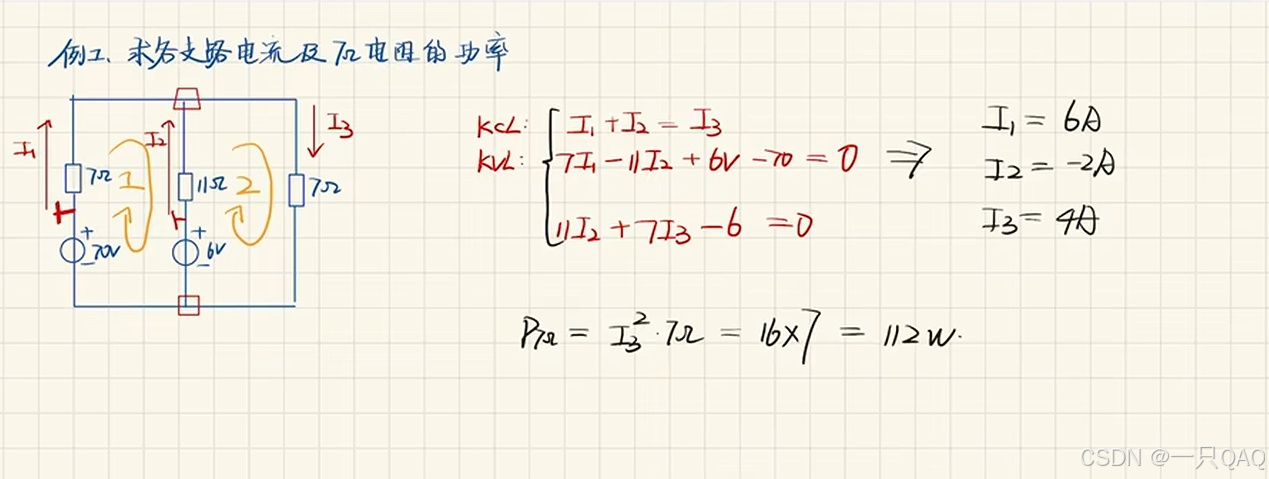 例1、求各支路电流及7Ω电阻的功率
I₁
7Ω
1
+
-70V
I₂
11Ω
2
+
-6V
I₃
7Ω
KCL: I₁+I₂=I₃
KVL: 7I₁-11I₂+6V-70=0 ⇒
11I₂+7I₃-6=0
I₁=6A
I₂=-2A
I₃=4A
P7Ω=I₃²·7Ω=16×7=112W.
CSDN @一只QAQ